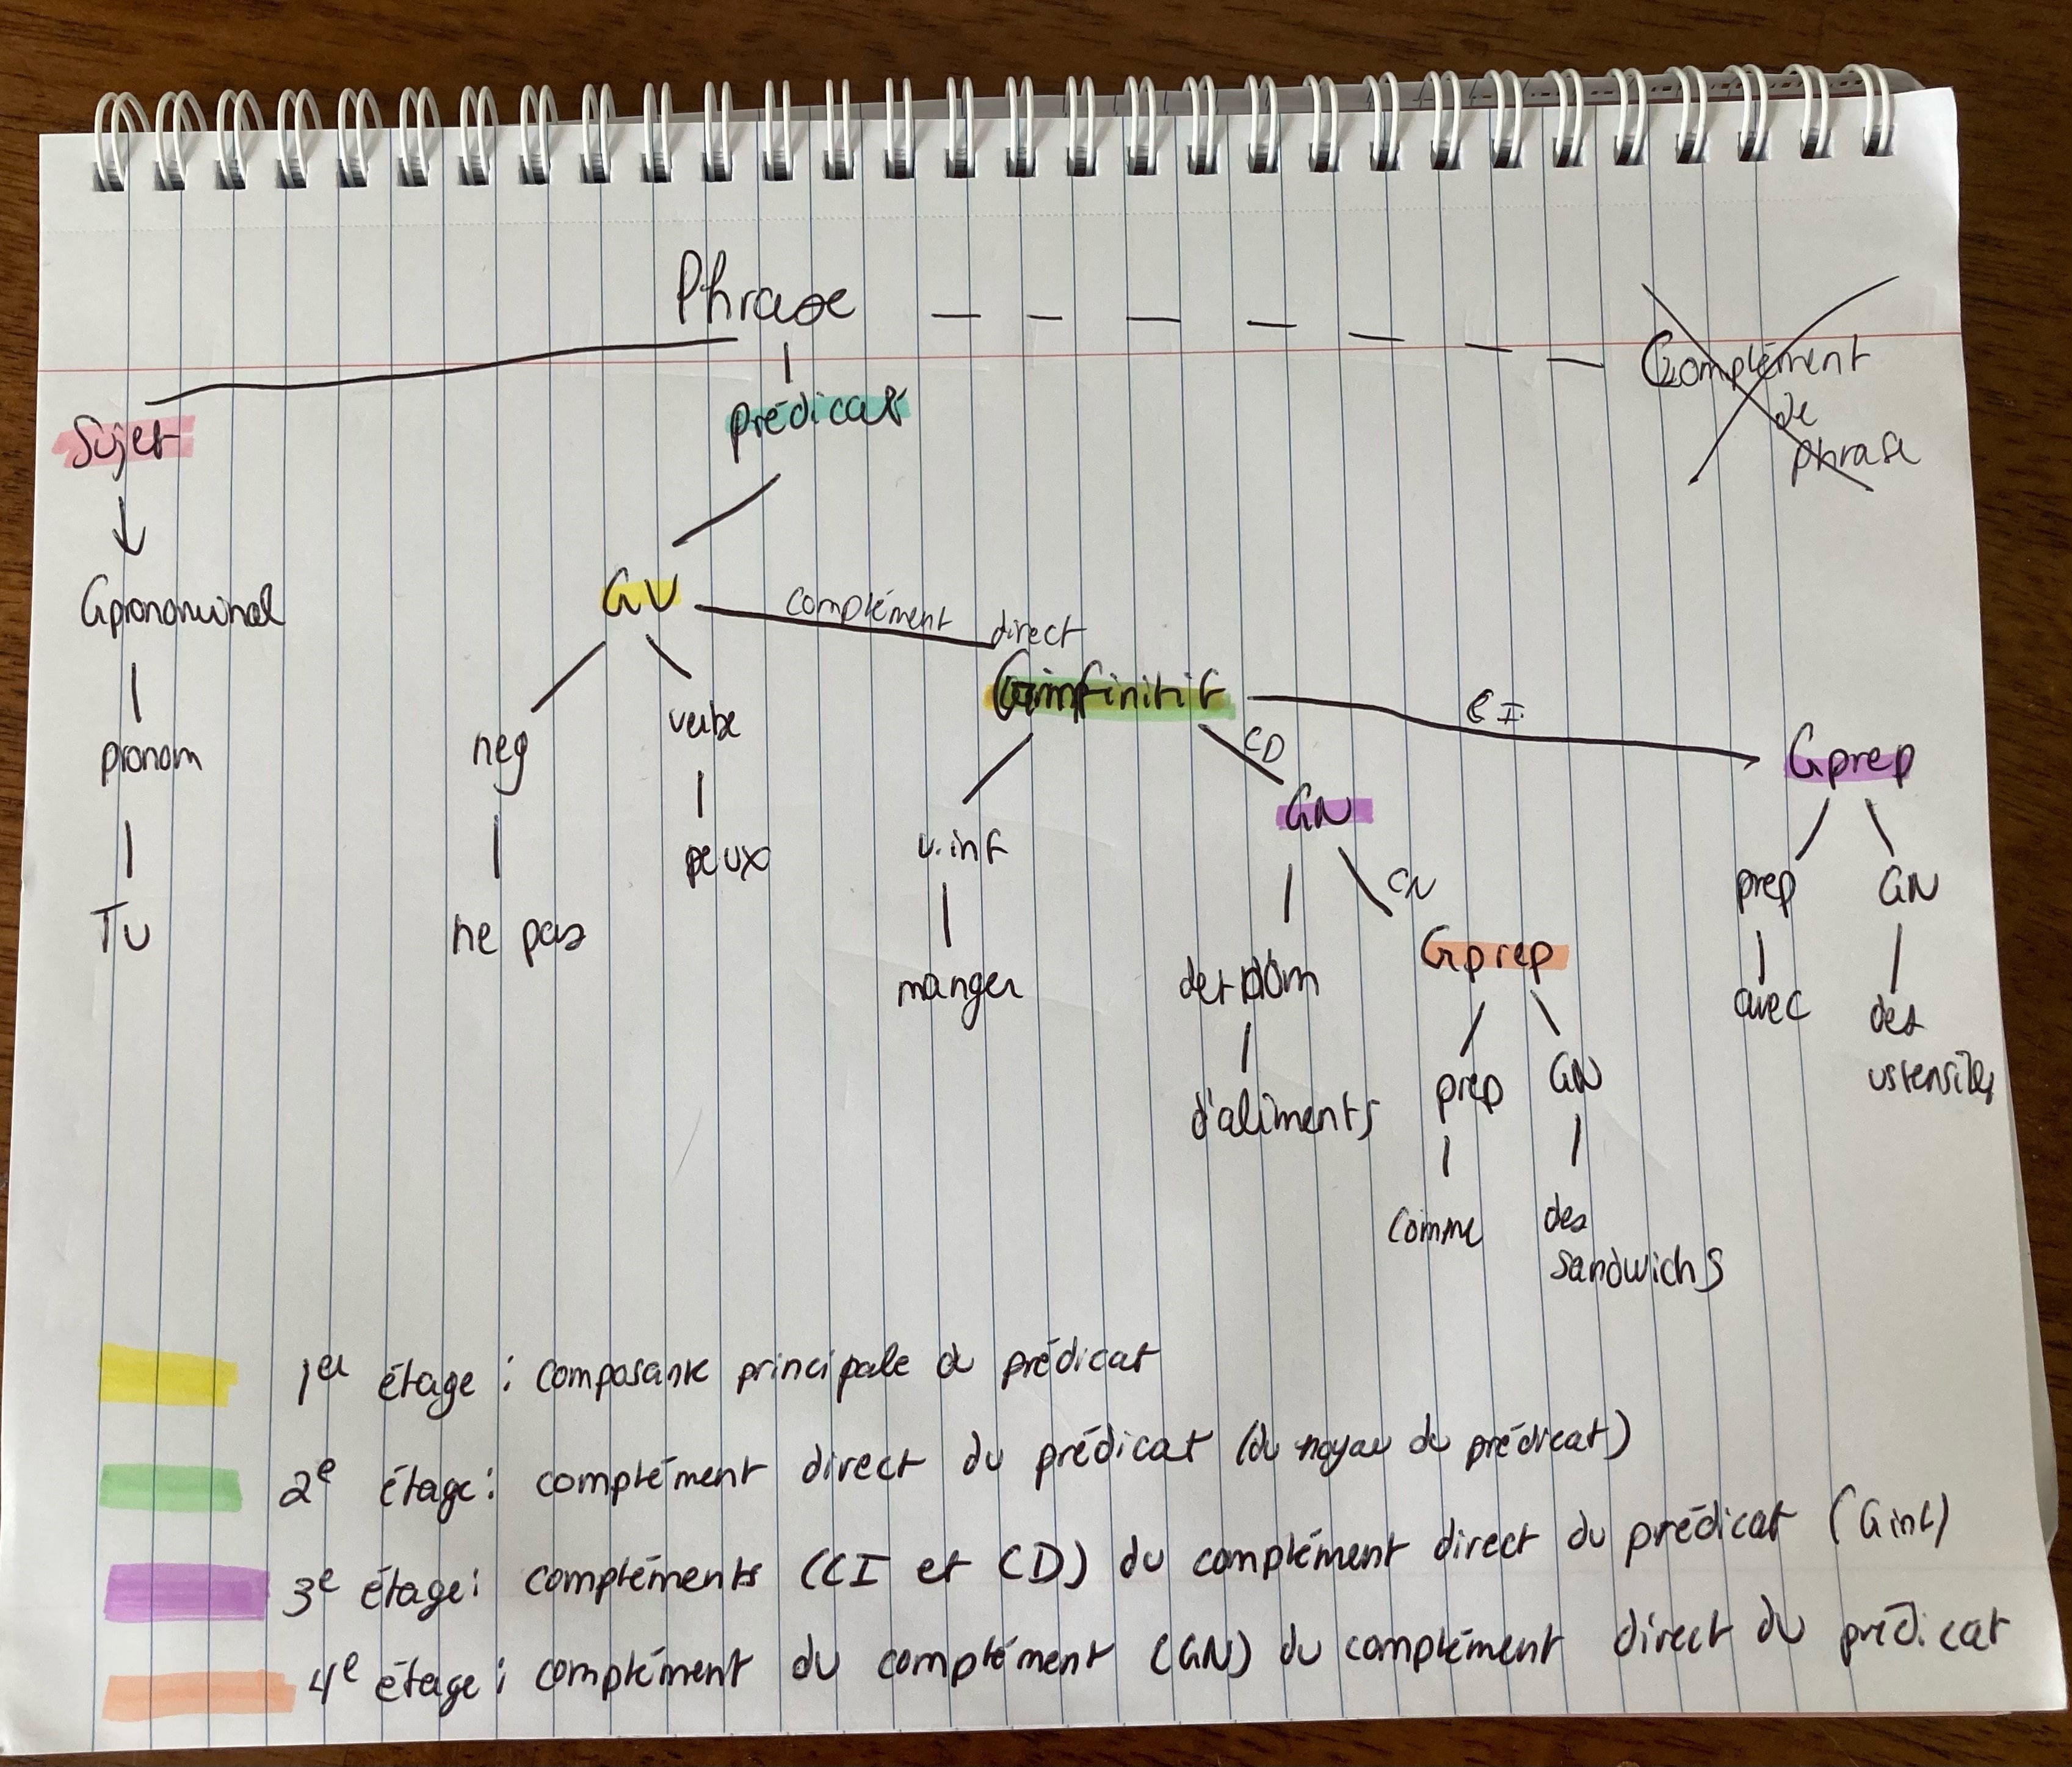 Phrase
Complément
de
phrase
Sujet
prédicat
GV
complément direct
Gpronominal
Ginfinitif
CI
neg
verbe
CD
Gprep
pronom
GN
peux
v.inf
CN
prep
GN
Tu
ne pas
manger
det nom
Gprep
avec
des
ustensiles
prep
GN
d'aliments
comme
des
sandwichs
1er étage : composante principale du prédicat
2e étage : complément direct du prédicat (du noyau du prédicat)
3e étage : compléments (CI et CD) du complément direct du prédicat (Ginf)
4e étage : complément du complément (GN) du complément direct du prédicat